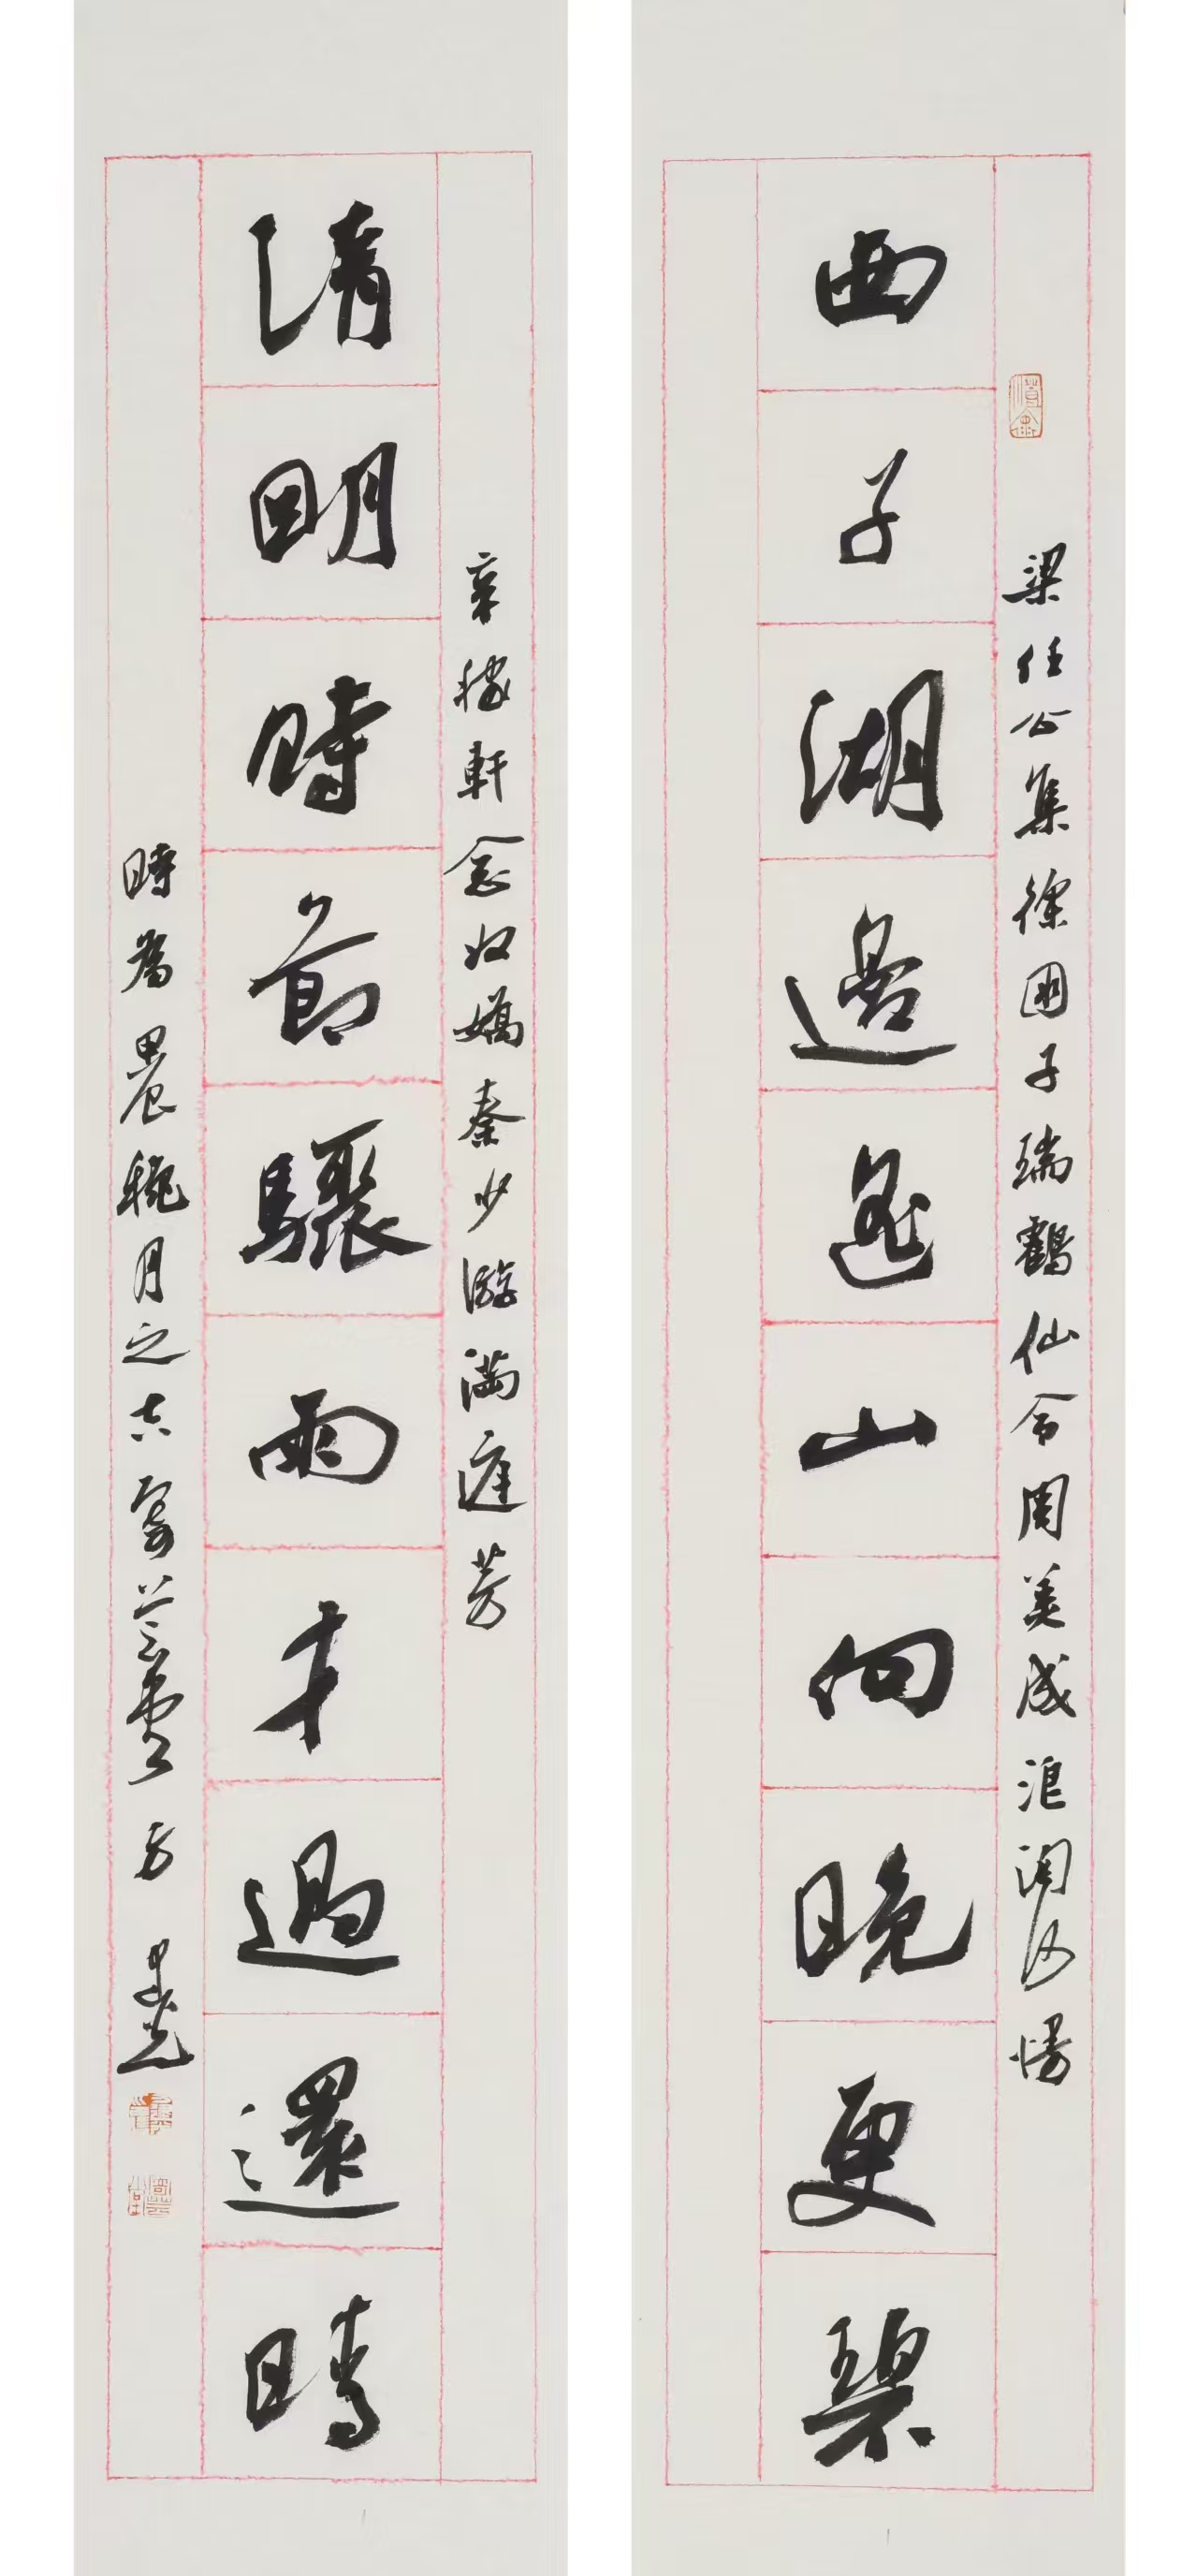 梁任公集徐國子瑞鶴仙令周美成浪淘沙慢
西子湖邊遙山向晚更碧
辛稼軒念奴嬌秦少游滿庭芳
清明時節驟雨才過還晴
時為甲辰穐月之吉